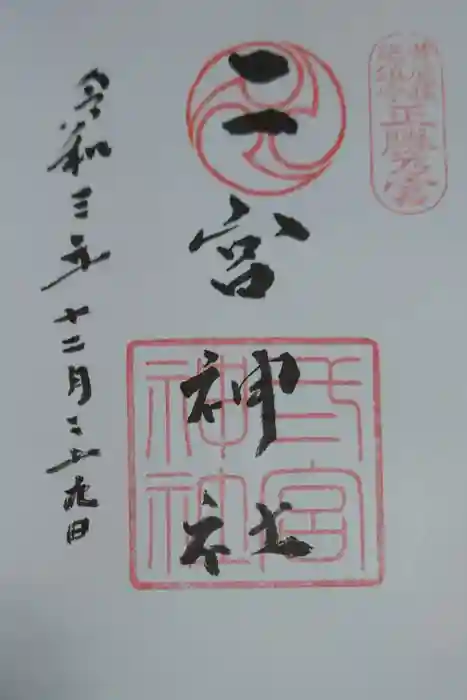 二宮神社
宮
神社
令和三年十二月二十九日